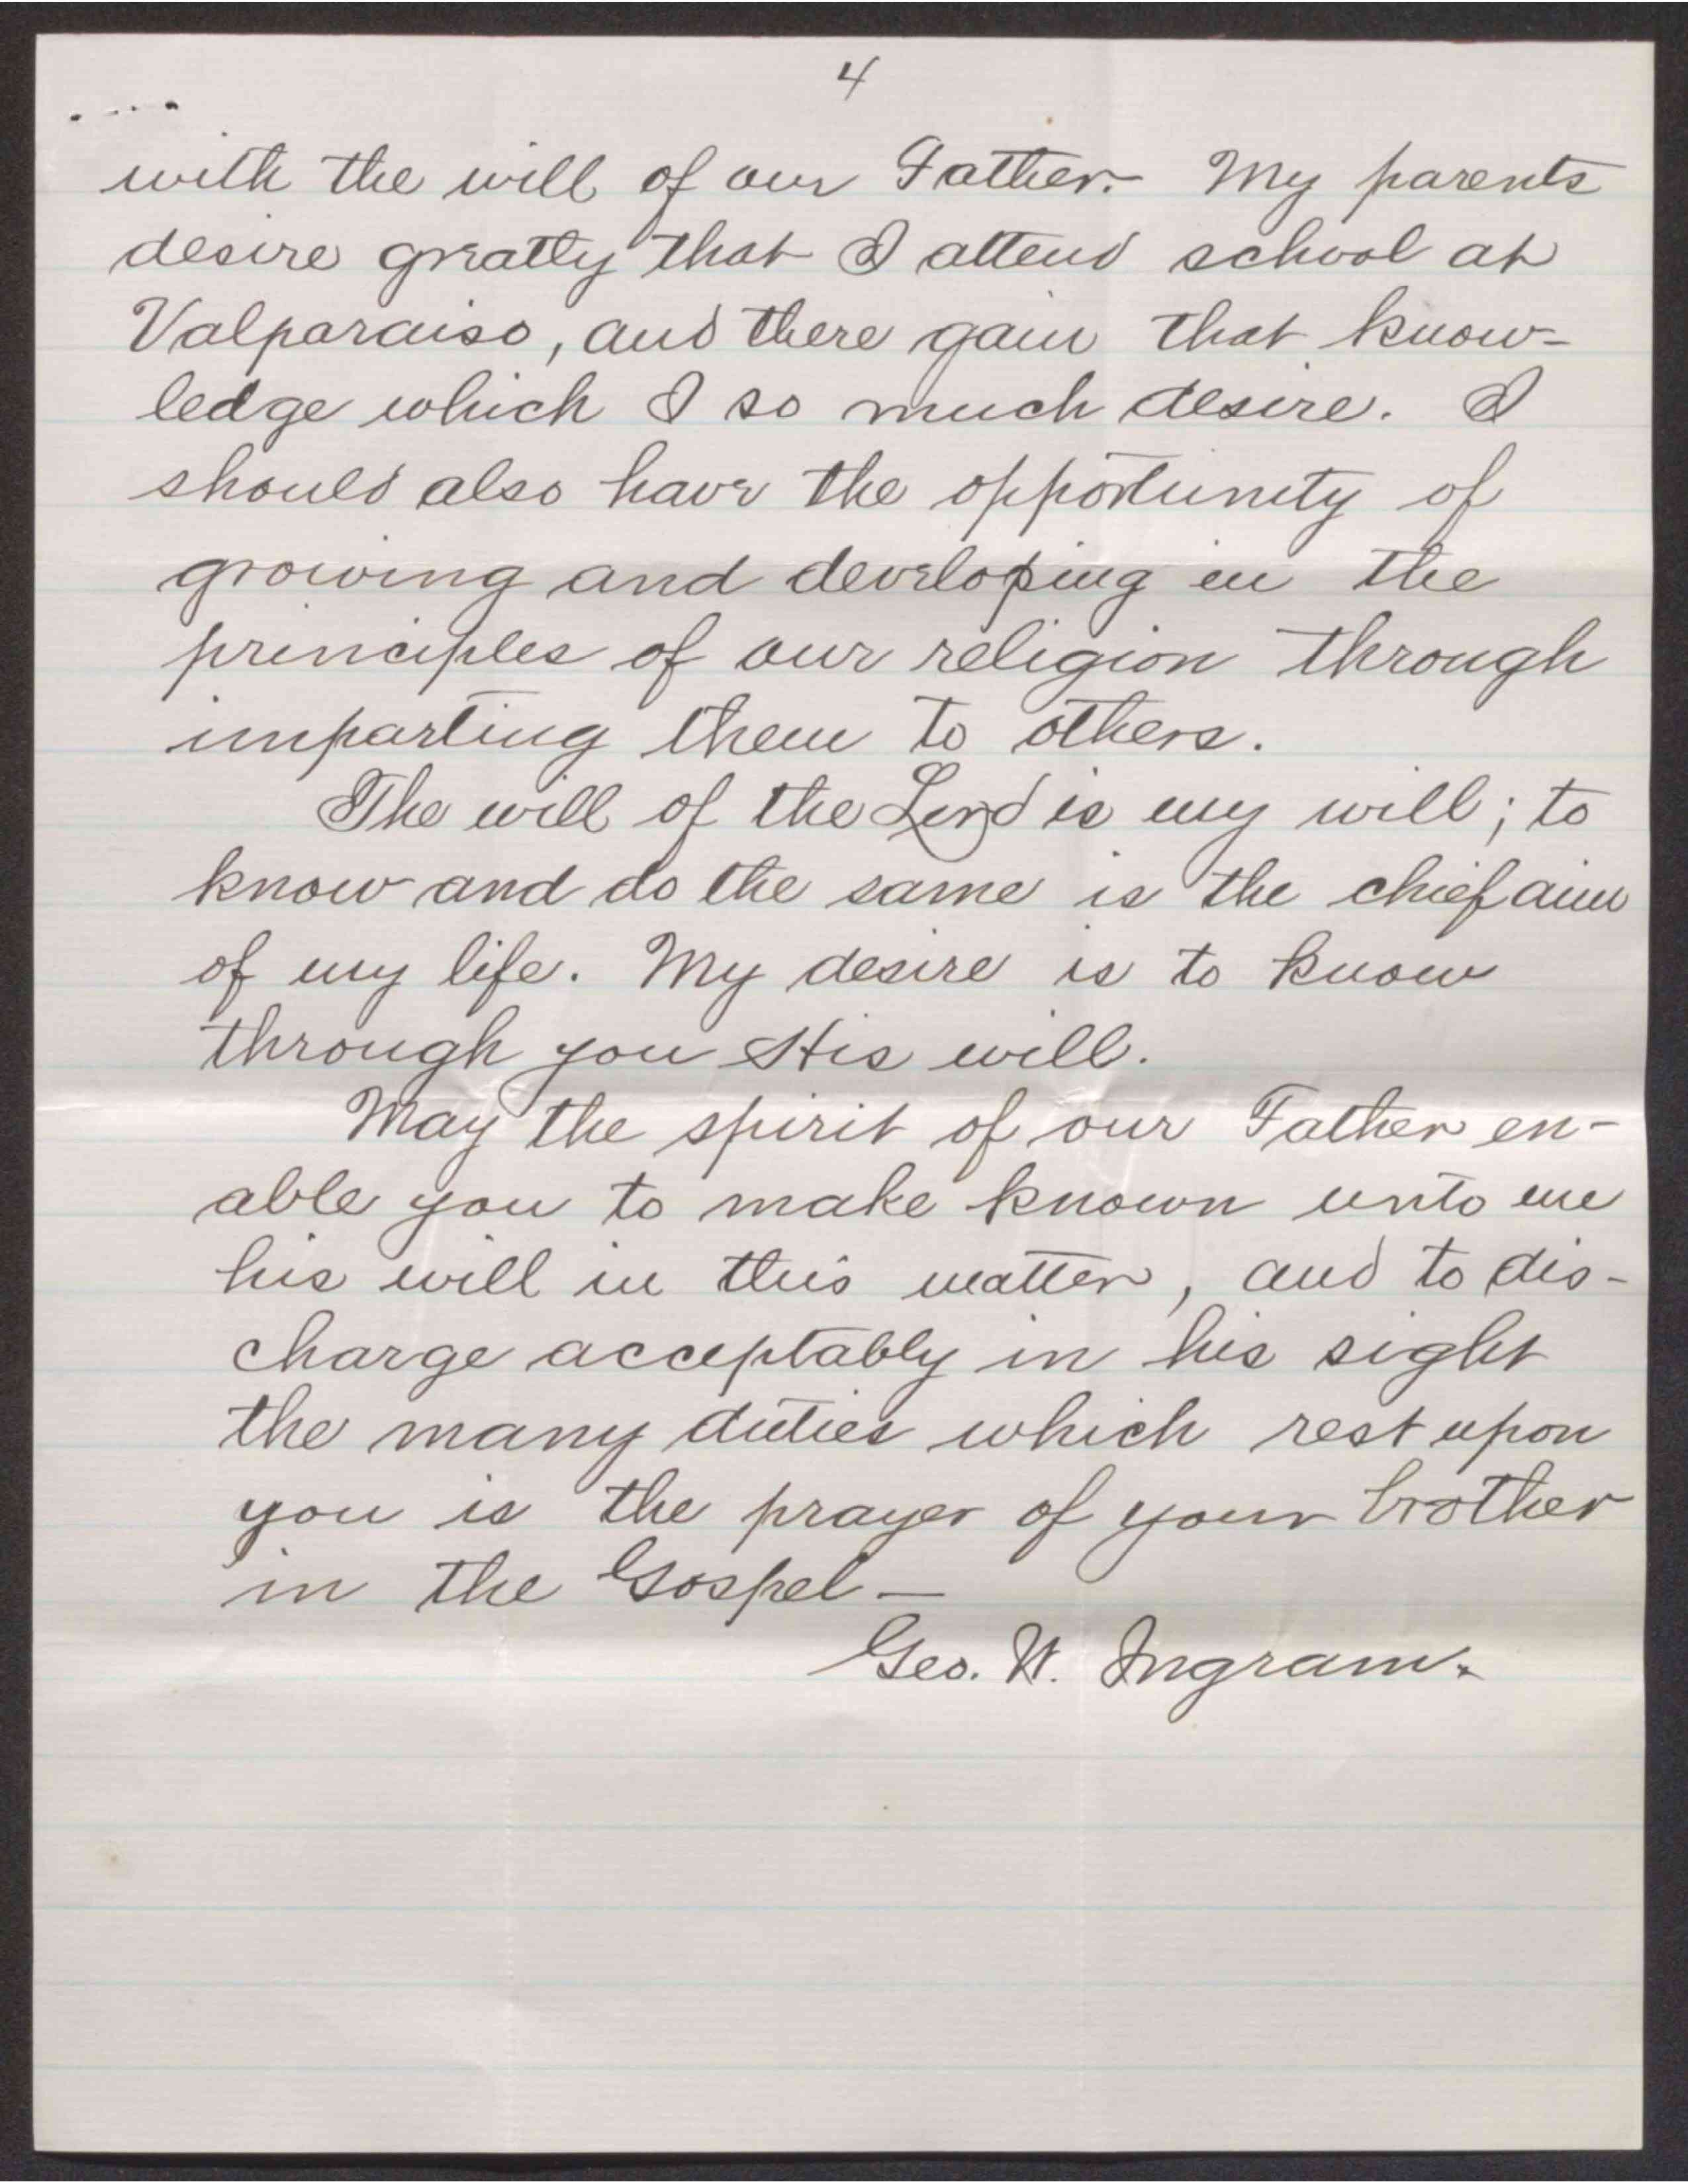 4
with the will of our Father. My parents
desire greatly that I attend school at
Valparaiso, and there gain that know-
ledge which I so much desire. I
should also have the opportunity of
growing and developing in the
principles of our religion through
imparting them to others.
The will of the Lord is my will; to
know and do the same is the chief aim
of my life. My desire is to know
through you His will.
May the spirit of our Father en-
able you to make known unto me
his will in this matter, and to dis-
charge acceptably in his sight
the many duties which rest upon
you is the prayer of your brother
in the Gospel—
Geo. W. Ingram.